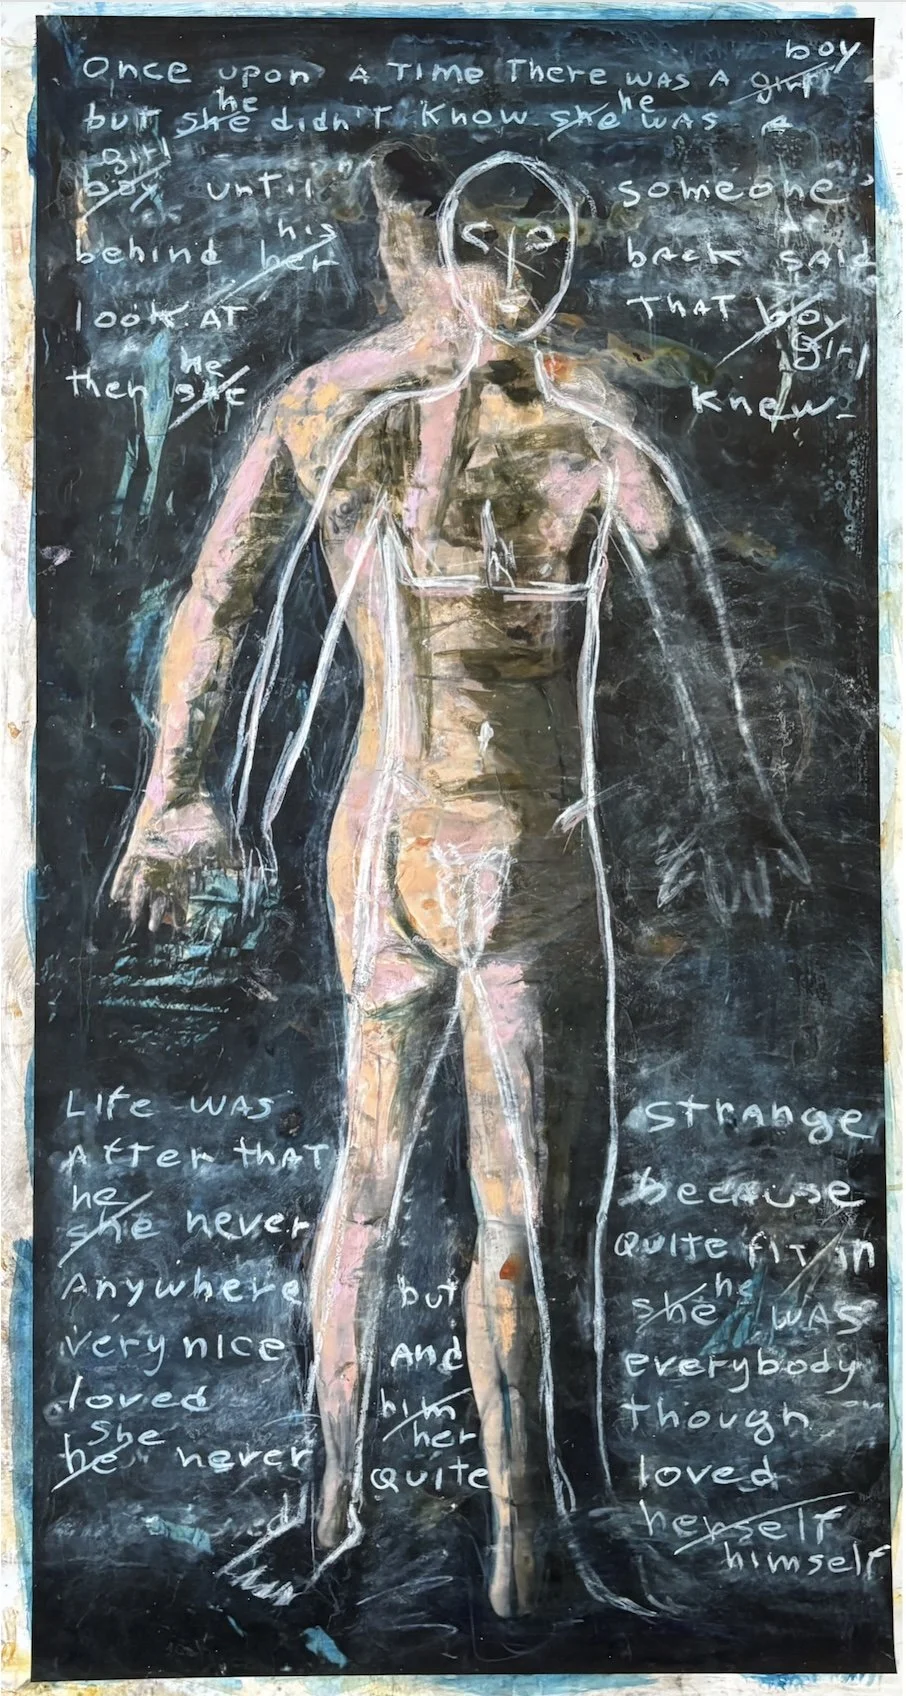 boy
Once upon A TIME There was A girl
he he
but she didn't know she was a
girl
boy until someone
his
behind her back said
look AT THAT boy
girl
he
then she knew
Life was strange
After that because
he
she never quite fit in
Anywhere but she he was
very nice and everybody
loved him though
her
she
he never quite loved
herself
himself